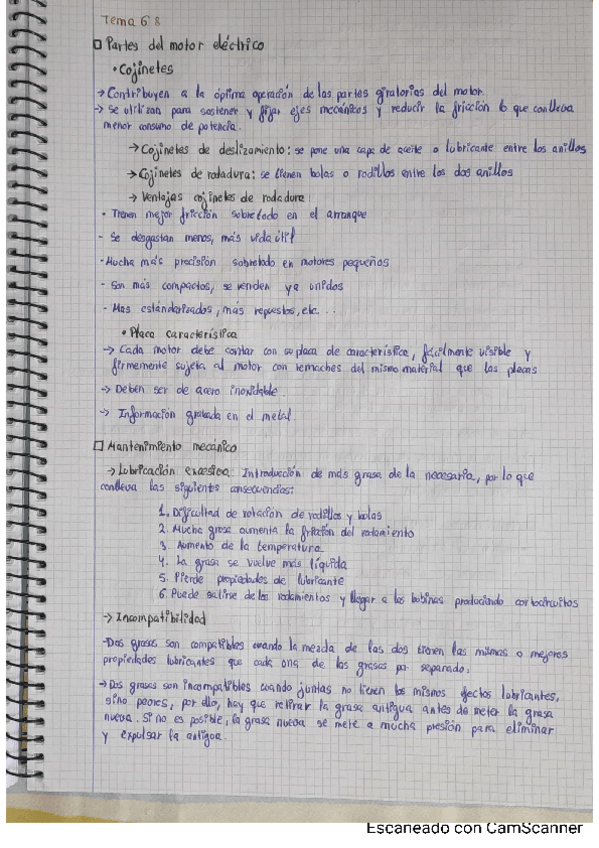 Tema 6 8
□ Partes del motor eléctrico
• Cojinetes
→ Contribuyen a la óptima operación de las partes giratorias del motor.
→ Se utilizan para sostener y fijar ejes mecánicos y reducir la fricción lo que conlleva
menor consumo de potencia.
→ Cojinetes de deslizamiento: se pone una capa de aceite o lubricante entre los anillos
→ Cojinetes de rodadura: se tienen bolas o rodillos entre los dos anillos
→ Ventajas cojinetes de rodadura:
• Tienen mejor fricción sobretodo en el arranque
- Se desgastan menos, más vida útil
- Mucha más precisión sobretodo en motores pequeños
- Son más compactos, se venden ya unidos
- Mas estándarizados, más repuestos, etc...
• Placa característica
→ Cada motor debe contar con su placa de característica, fácilmente visible y
firmemente sujeta al motor con remaches del mismo material que las placas
→ Deben ser de acero inoxidable.
→ Información grabada en el metal.
□ Mantenimiento mecánico
→ Lubricación excesiva: Introducción de más grasa de la necesaria, por lo que
conlleva las siguientes consecuencias:
1. Dificultad de rotación de rodillos y bolas
2. Mucha grasa aumenta la fricción del rodamiento
3. Aumento de la temperatura
4. La grasa se vuelve más líquida
5. Pierde propiedades de lubricante
6. Puede salirse de los rodamientos y llegar a las bobinas produciendo cortocircuitos
→ Incompatibilidad
- Dos grasas son compatibles cuando la mezcla de las dos tienen las mismas o mejores
propiedades lubricantes que cada una de las grasas por separado.
→ Dos grasas son incompatibles cuando juntas no tienen los mismos efectos lubricantes,
sino peores, por ello, hay que retirar la grasa antigua antes de meter la grasa
nueva. Si no es posible, la grasa nueva se mete a mucha presión para eliminar
y expulsar la antigua.
Escaneado con CamScanner